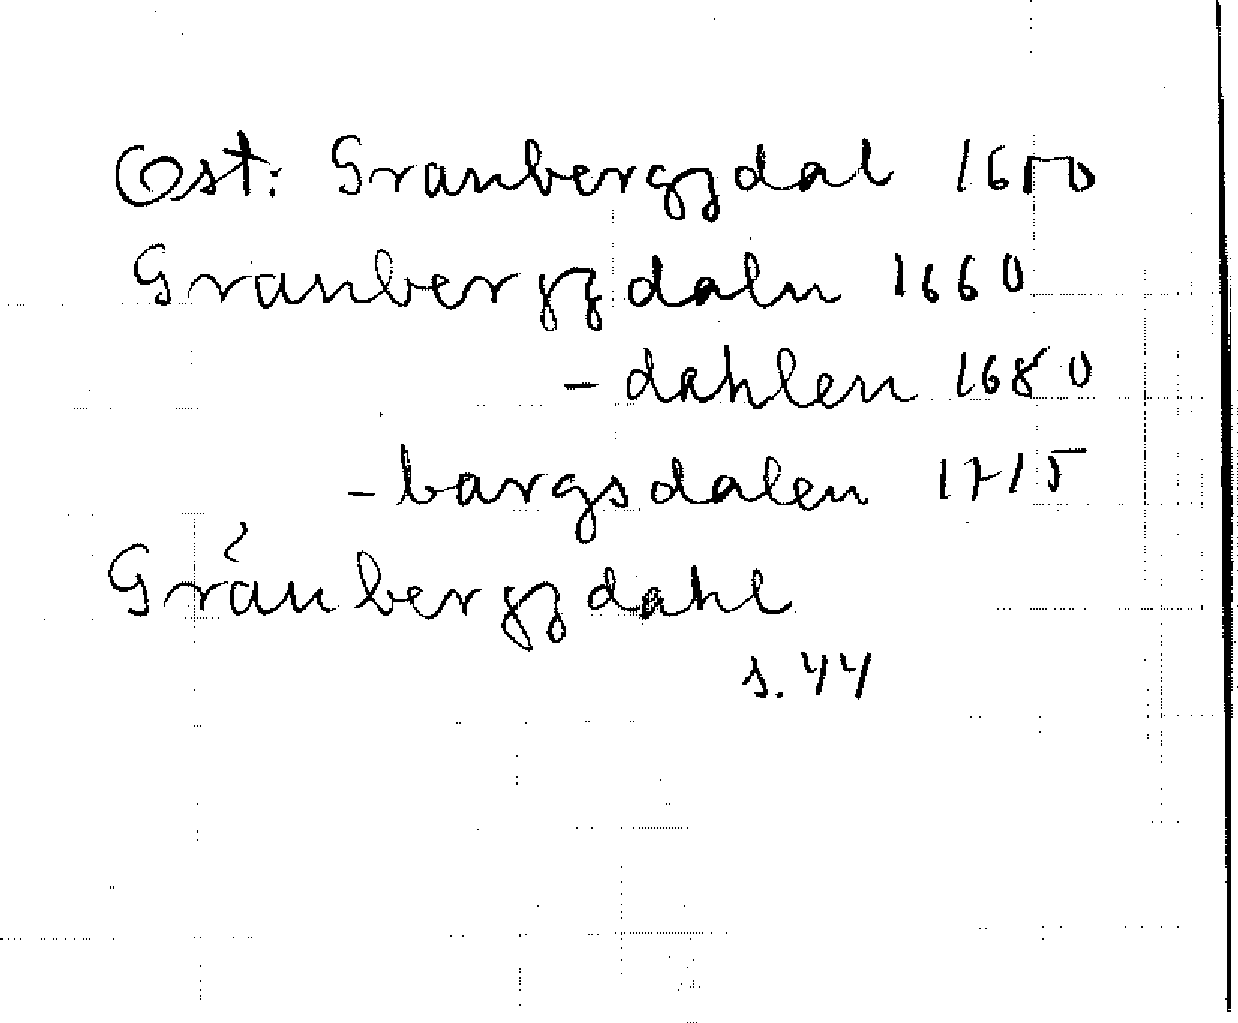 Ost: Granbergzdal 1650
Granbergzdaln 1660
- dahlen 1680
- bargsdalen 1715
Gränbergzdahl
s. 44